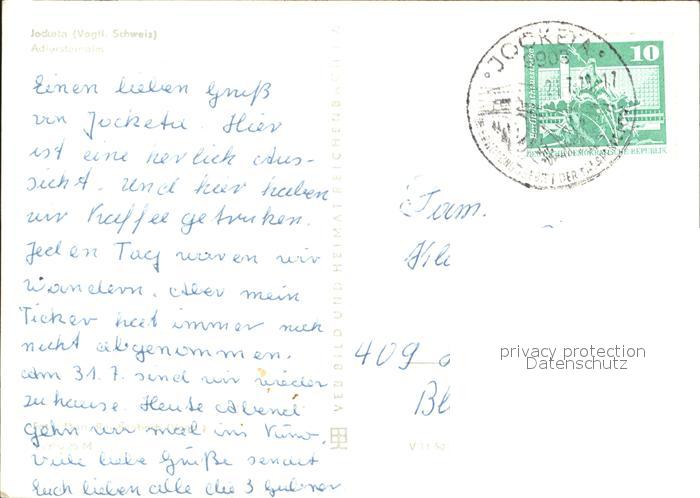 Jocketa (Vogtl. Schweiz)
Adlersteinalm
Einen lieben Gruß
von Jocketa. Hier
ist eine herlich Aus-
sicht. Und hier haben
wir Kaffee getrunken.
Jeden Tag waren wir
Wandern. Aber mein
Ticker hat immer noch
nicht abgenommen.
Am 31.7. sind wir wieder
zu hause. Heute Abend
gehn wir mal ins Kino.
Viele liebe Grüße sendet
Euch lieben alle die 3
VEB BILD UND HEIMAT REICHENBACH
JOCKETA
10
DEUTSCHE DEMOKRATISCHE REPUBLIK
Fam.
409
privacy protection
Datenschutz